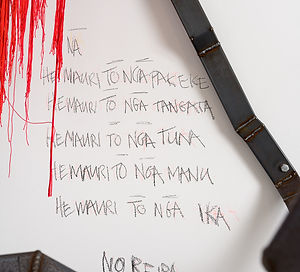 NĀ
HE MAURI TŌ NGĀ PAKEKE
HE MAURI TŌ NGĀ TANGATA
HE MAURI TŌ NGĀ TUNA
HE MAURI TŌ NGĀ MANU
HE MAURI TŌ NGĀ IKA
NO REIRA